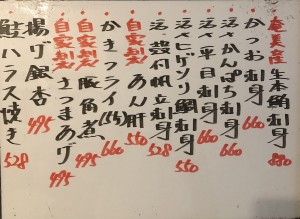 奄美産 生本鮪刺身 880
かつお刺身 660
活〆かんぱち刺身 660
活〆平目刺身 660
活〆ヒゲソリ鯛刺身 550
活〆殻付帆立刺身 528
自家製 あん肝 550
かきフライ 660
自家製 豚角煮 495
自家製 さつまあげ 495
揚げ銀杏 495
鮭ハラス焼き 528